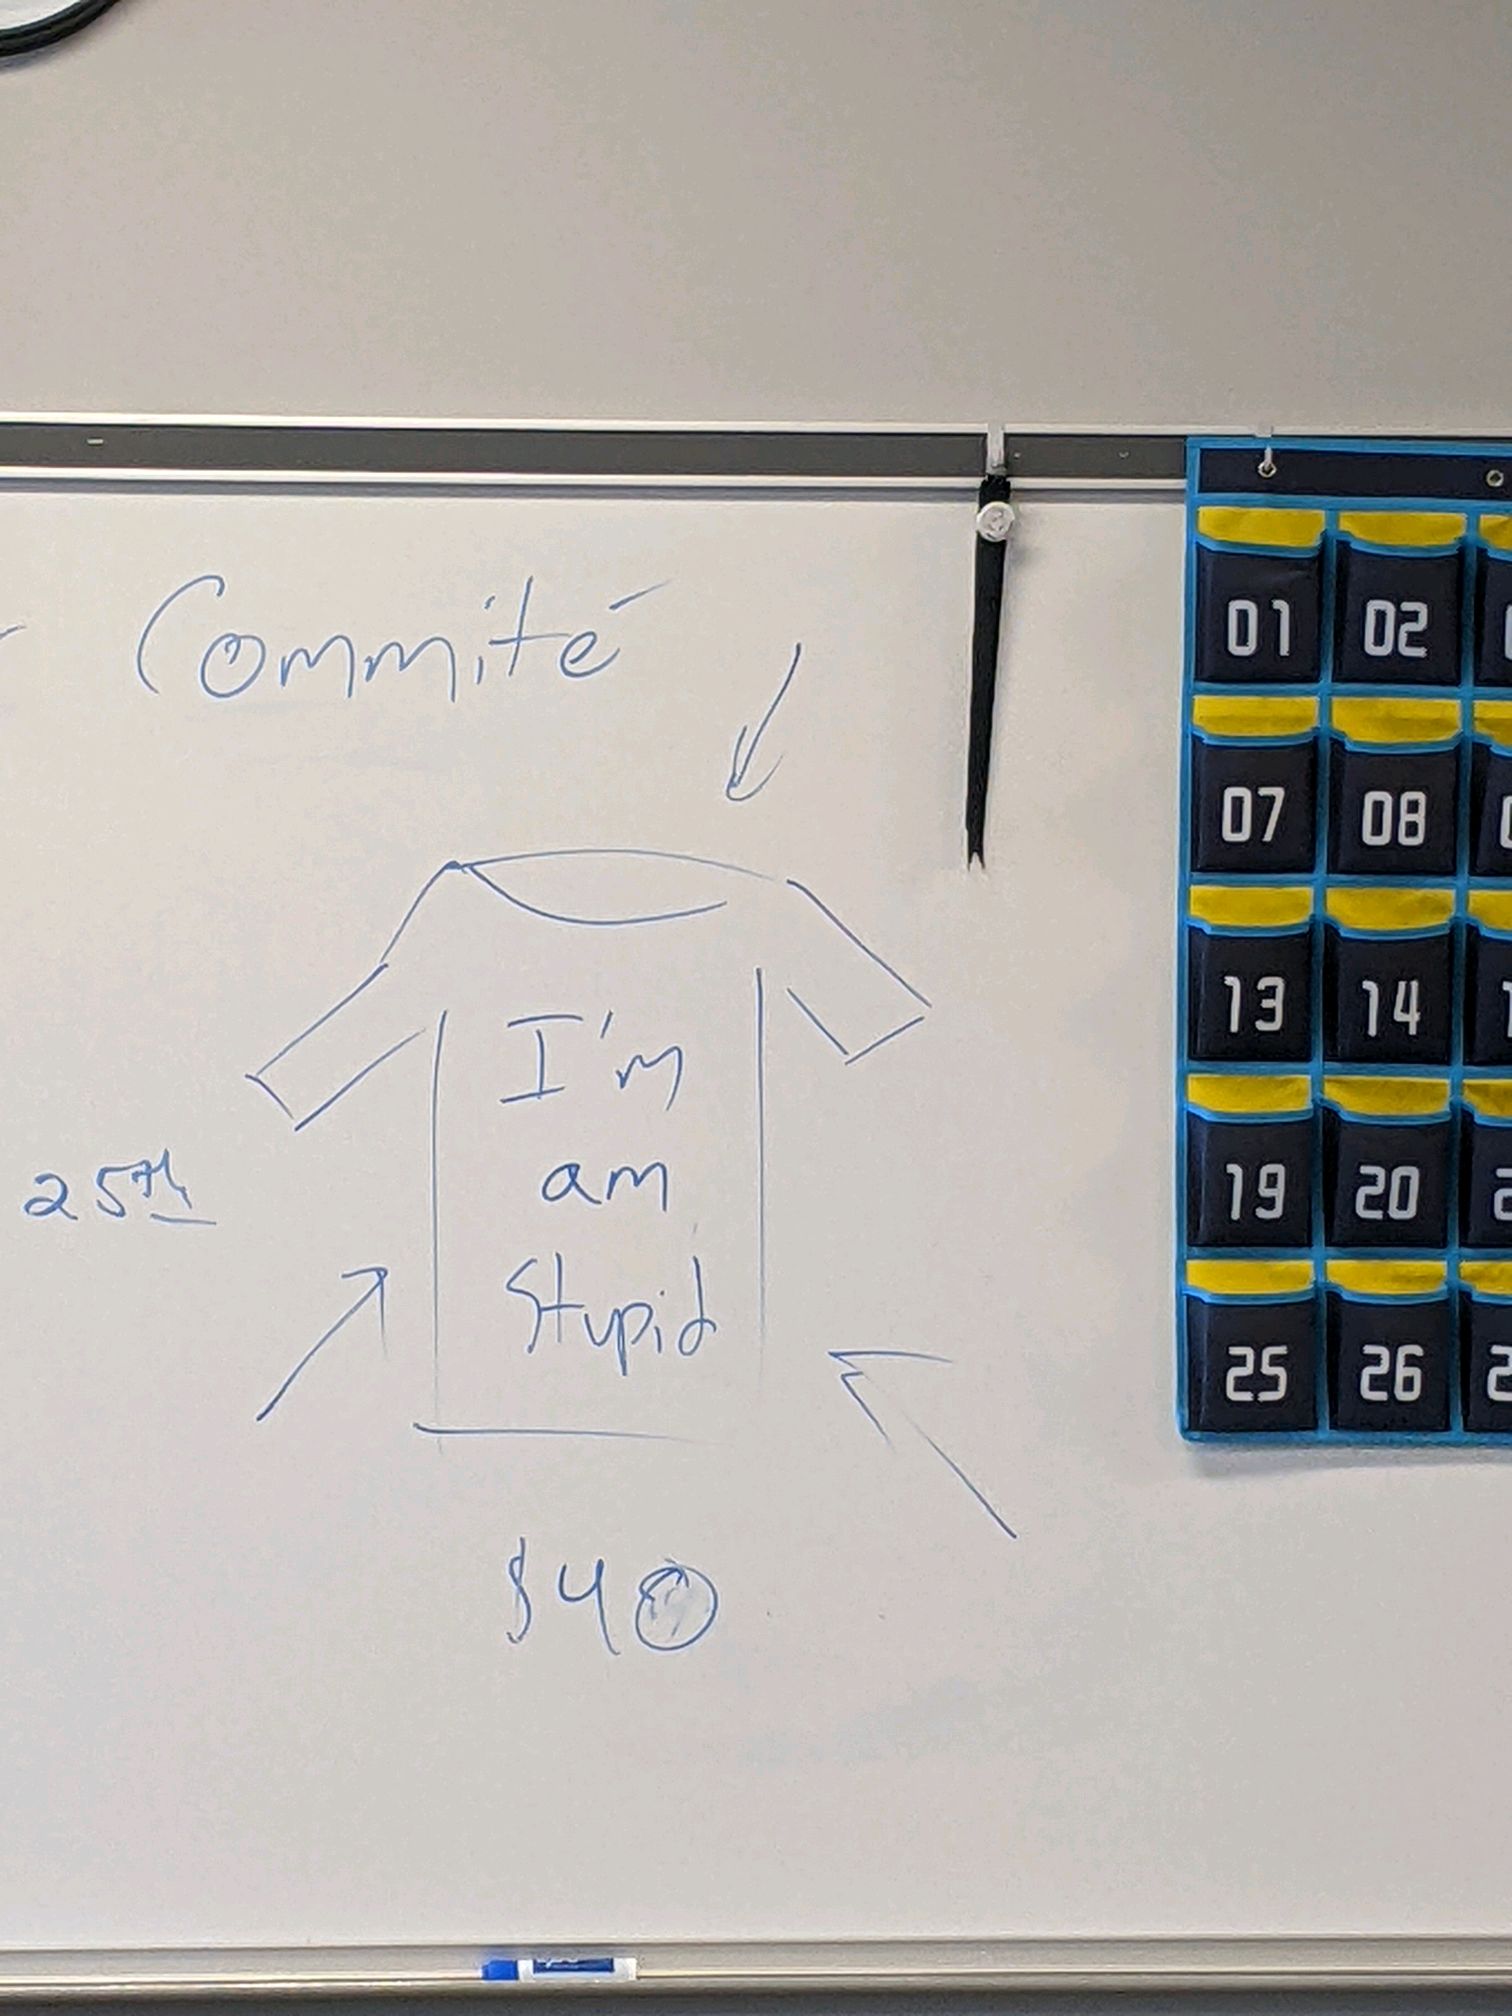 Commité
I'm
am
Stupid
25th
$40
01 02
07 08
13 14
19 20
25 26